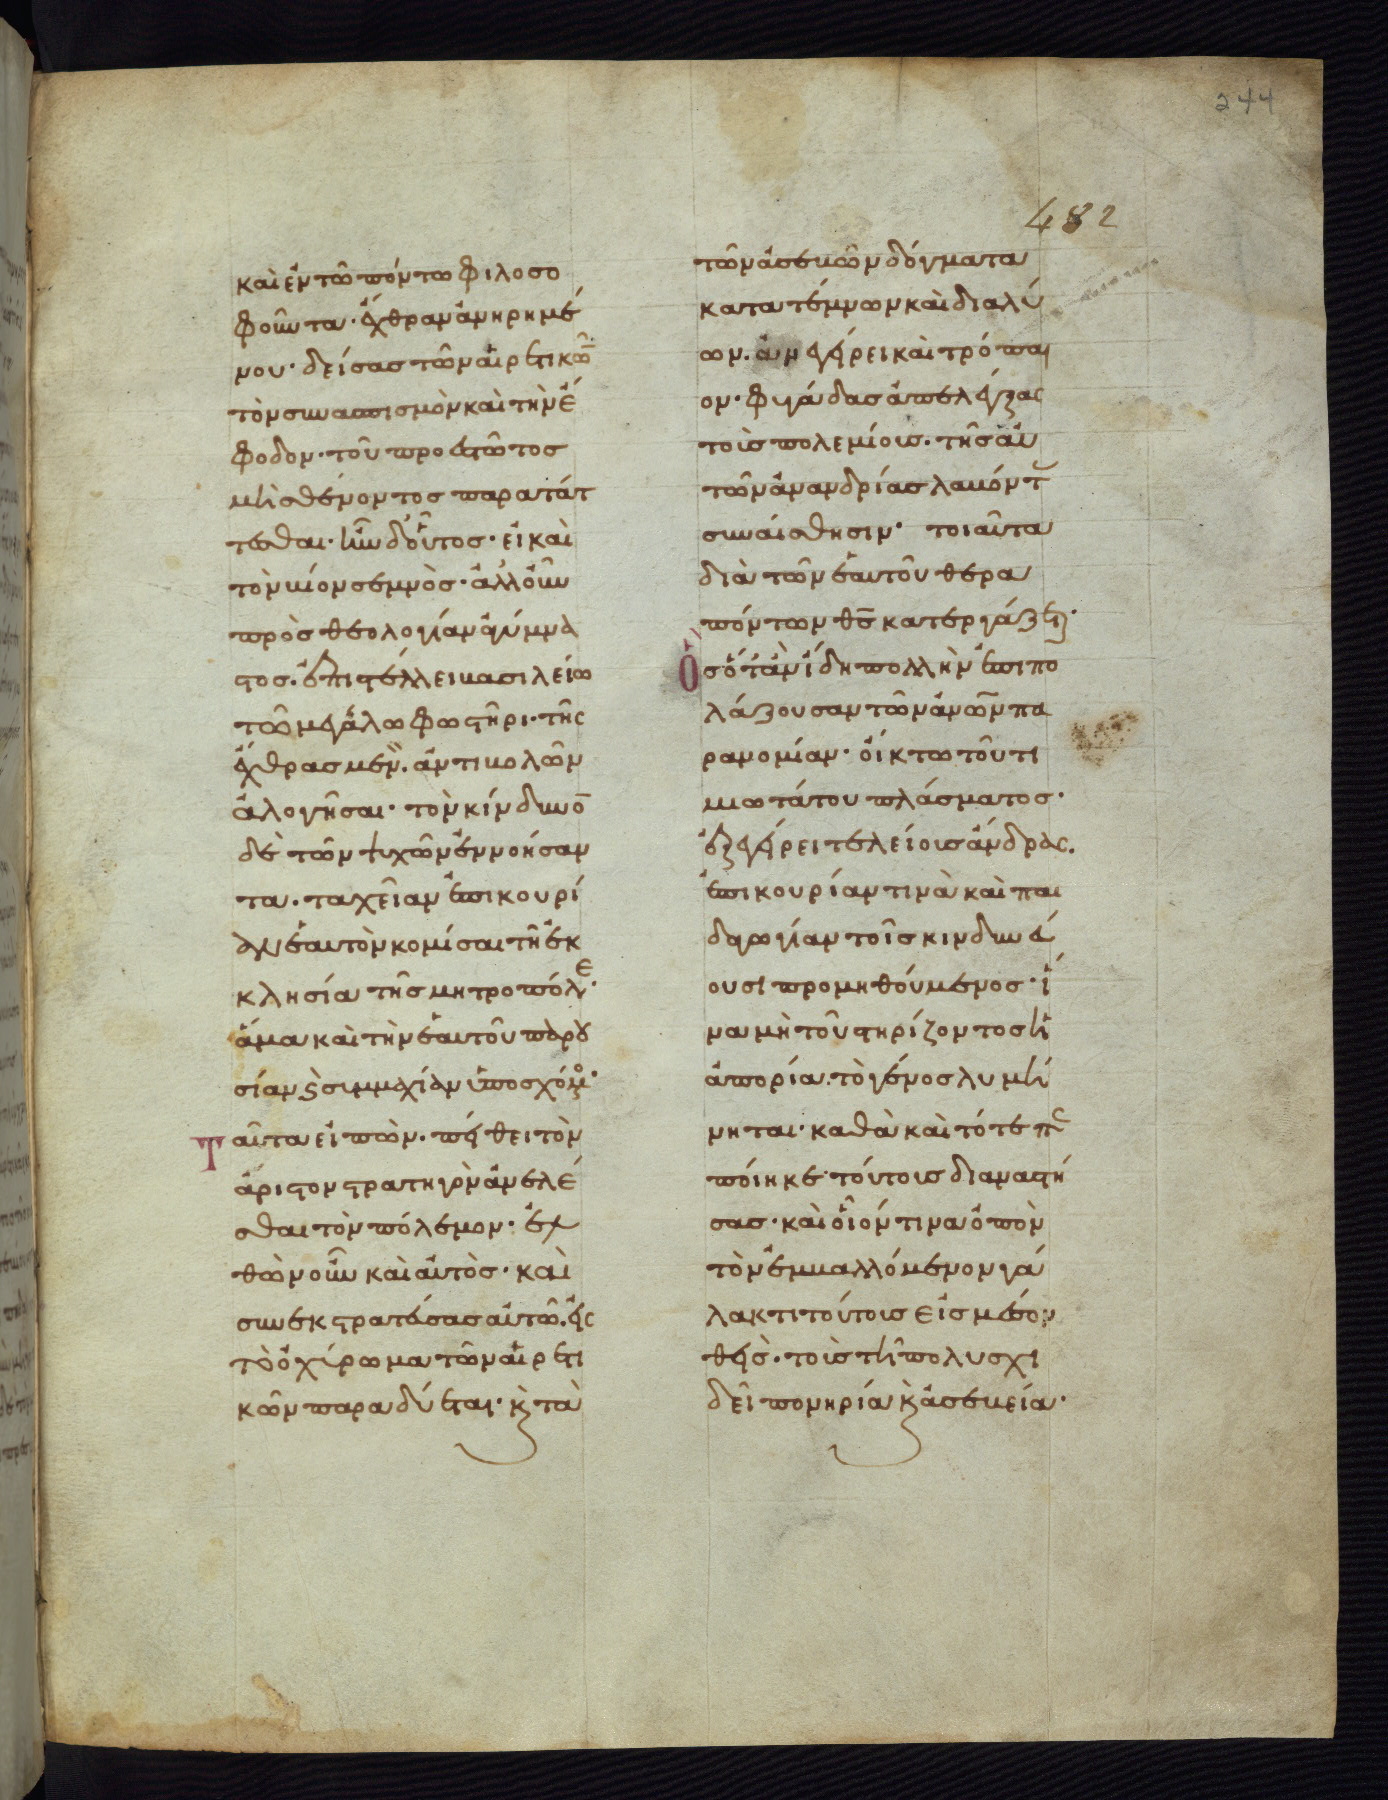 244
482
καὶ ἐν τῶ πόντω φιλοσο
φοῦντα· ἔχθραν ἀνηρημέ
νου· δείσας τῶν αἱρετικῶν
τὸν συνασπισμὸν καὶ τὴν ἔ
φοδον· τοῦ προεστῶτος
μὴ σθένοντος παρατάτ
τεσθαι· ἦν δ' οὗτος· εἰ καὶ
τὸν βίον σεμνὸς· ἀλλ' οὖν
πρὸς θεολογίαν ἀγύμνα
στος· ἐπιστέλλει βασιλείω
τῶ μεγάλω φωστῆρι· τῆς
ἔχθρας μὲν· ἀντιβολῶν
ἀλογῆσαι· τὸν κίνδυνον
δὲ τῶν ψυχῶν ἐννοήσαν
τα· ταχεῖαν ἐπικουρί
αν ἑαυτὸν κομίσαι τῆ ἐκ
κλησία τῆς μητροπόλε·
ἅμα καὶ τὴν ἑαυτοῦ παρου
σίαν καὶ συμμαχίαν ὑποσχόμενος·
Ταῦτα εἰπὼν· πείθει τὸν
ἀριστοστρατηγὸν ἀνελέ
σθαι τὸν πόλεμον· ἐλ
θὼν οὖν καὶ αὐτὸς· καὶ
συνεκστρατεύσας αὐτῶ· εἰς
τὸ ὀχύρωμα τῶν αἱρετι
κῶν παραδύεται· καὶ τὰ
τῶν ἀσεβῶν δόγματα
κατατέμνων καὶ διαλύ
ων· ἀνεγείρει καὶ τρόπαι
ον· φυγάδας ἀπελέγξας
τοὺς πολεμίους· τῆς αὐ
τῶν ἀνανδρίας λαβόντας
συναίσθησιν· τοιαῦτα
διὰ τῶν ἑαυτοῦ θερα
πόντων θς κατεργάζεται·
Ὃς ὅταν ἴδη πολλὴν ἐπιπο
λάζουσαν τῶν ἀνων πα
ρανομίαν· οἴκτω τοῦ τι
μιωτάτου πλάσματος·
ἐξεγείρει τελείους ἄνδρας·
ἐπικουρίαν τινὰ καὶ παι
δαγωγίαν τοῖς κινδυνεύ
ουσι προμηθούμενος· ἵ
να μὴ τοῦ στηρίζοντος ἡ
ἀπορία· τὸ γένος λυμή
νηται· καθὰ καὶ τότε πε
ποίηκε· τούτους διαναστή
σας· καὶ οἱονεί τινα ὀπὸν
τὸν ἐμβαλλόμενον γά
λακτι τούτους εἰς μέσον
θεὶς· τοὺς τῆ πολυσχι
δεῖ πονηρία καὶ ἀσεβεία·